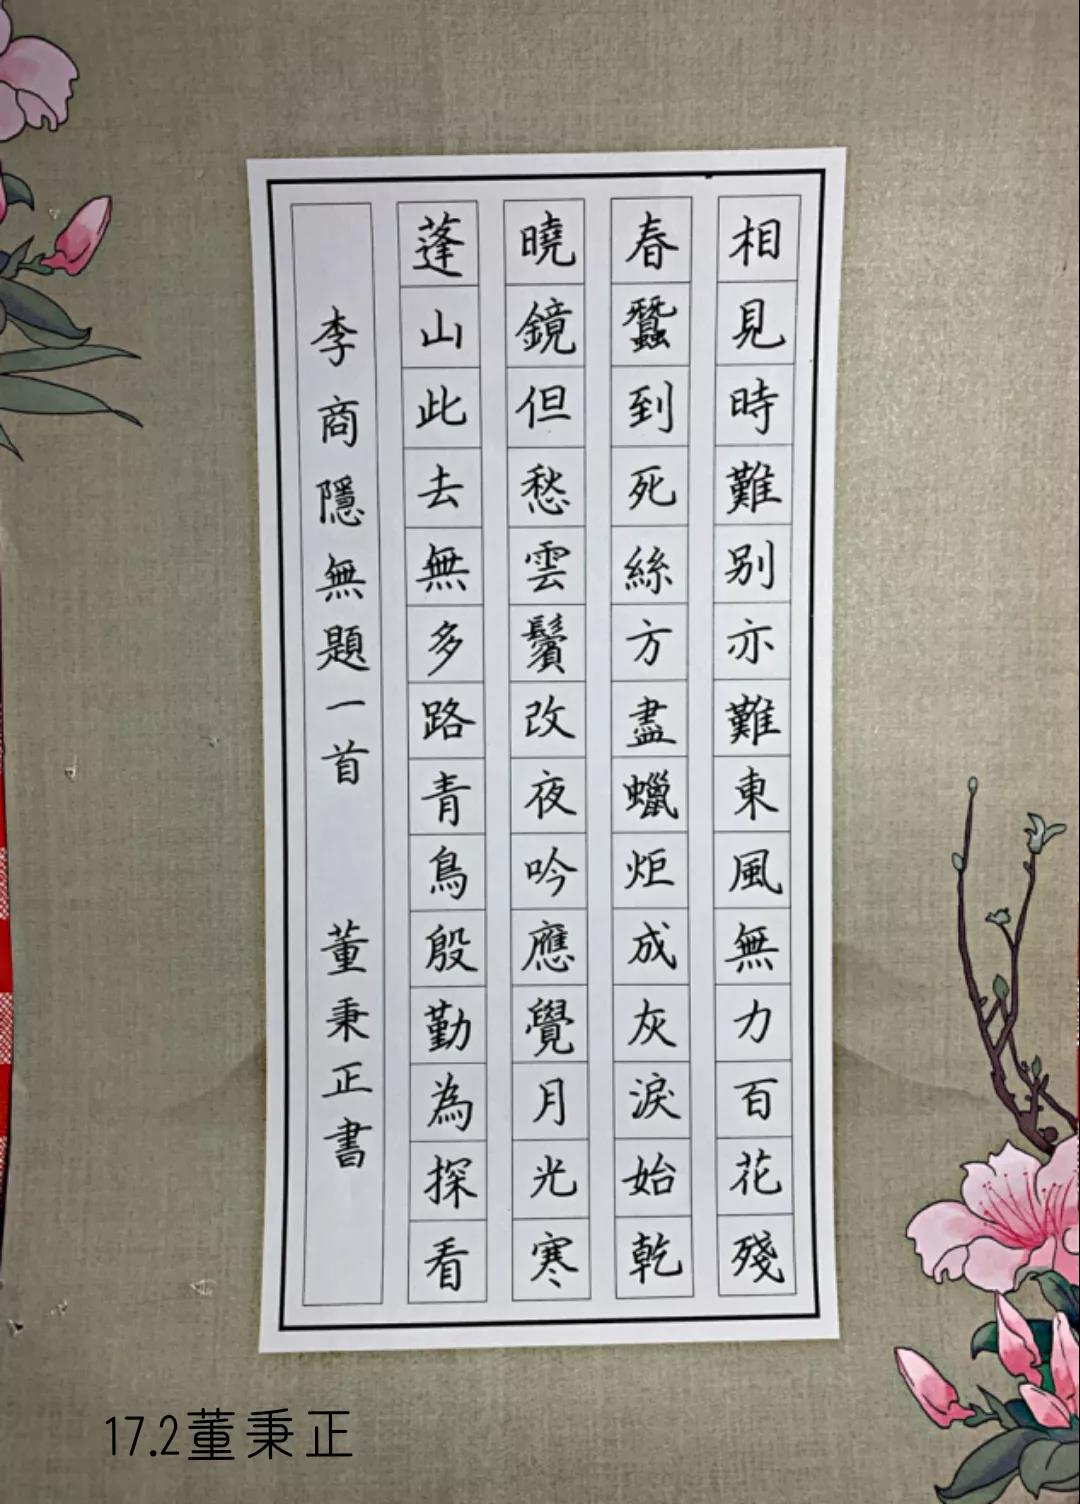 相見時難别亦難東風無力百花殘
春蠶到死絲方盡蠟炬成灰淚始乾
曉鏡但愁雲鬢改夜吟應覺月光寒
蓬山此去無多路青鳥殷勤為探看
李商隱無題一首 董秉正書
17.2董秉正